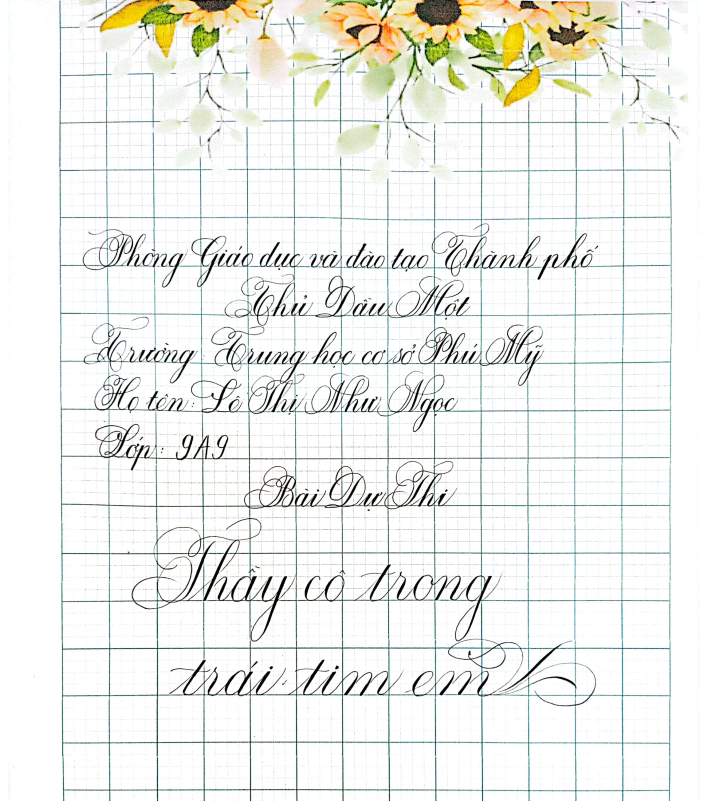 Phòng Giáo dục và đào tạo Thành phố
Thủ Dầu Một
Trường: Trung học cơ sở Phú Mỹ
Họ tên: Lê Thị Như Ngọc
Lớp: 9A9
Bài Dự Thi
Thầy cô trong
trái tim em